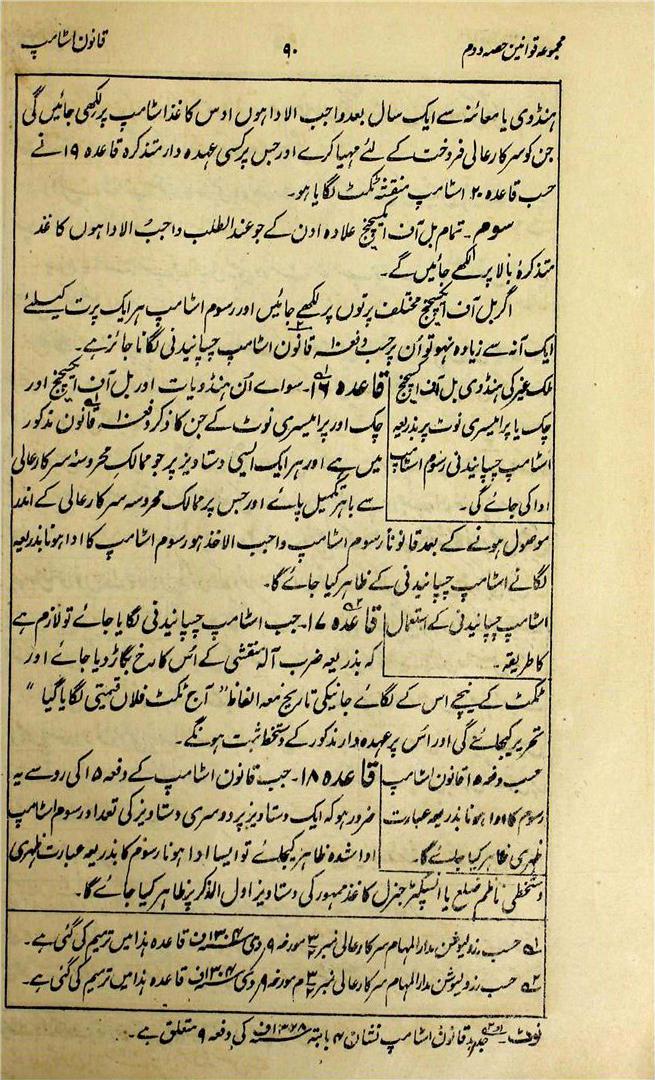 مجموعہ قوانین حصہ دوم
۹۰
قانون اسٹامپ
ہنڈوی یا معائنہ سے ایک سال بعد واجب الادا ہوں اوس کاغذ اسٹامپ پر لکھی جائیں گی
جن کو سرکار عالی فروخت کے لئے مہیا کرے اور جس پر کسی عہدہ دار متذکرہ قاعدہ ۱۹ نے
حسب قاعدہ ۲۰ اسٹامپ منقشہ ٹکٹ لگایا ہو۔
سوم۔ تمام بل آف ایکسچینج علاوہ اون کے جو عند الطلب واجب الادا ہوں کاغذ
متذکرہ بالا پر لکھے جائیں گے۔
اگر بل آف ایکسچینج مختلف پرتوں پر لکھے جائیں اور رسوم اسٹامپ ہر ایک پرت کیلئے
ایک آنہ سے زیادہ نہو تو اُن پر حسب دفعہ ۱۰ قانون اسٹامپ چسپانیدنی لگانا جائز ہے۔
ملک غیر کی ہنڈوی بل آف ایکسچینج
چک یا پرامیسری نوٹ پر بذریعہ
اسٹامپ چسپانیدنی رسوم اسٹامپ
ادا کی جائے گی۔
قاعدہ ۱۶۔ سواے اُن ہنڈویات اور بل آف ایکسچینج اور
چک اور پرامیسری نوٹ کے جن کا ذکر دفعہ ۱۰ قانون مذکور
میں ہے اور ہر ایک ایسی دستاویز پر جو ممالک محروسہ سرکار عالی
سے باہر تکمیل پائے اور جس پر ممالک محروسہ سرکار عالی کے اندر
موصول ہونے کے بعد قانوناً رسوم اسٹامپ واجب الاخذ ہو رسوم اسٹامپ کا ادا ہونا بذریعہ
لگانے اسٹامپ چسپانیدنی کے ظاہر کیا جائے گا۔
اسٹامپ چسپانیدنی کے استعمال
کا طریقہ۔
قاعدہ ۱۷۔ جب اسٹامپ چسپانیدنی لگایا جائے تو لازم ہے
کہ بذریعہ ضرب آلہ منقشی کے اُس کا رخ بگاڑ دیا جائے اور
ٹکٹ کے نیچے اس کے لگائے جانیکی تاریخ معہ الفاظ "آج ٹکٹ فلاں قیمتی لگایا گیا"
تحریر کیجائے گی اور اس پر عہدہ دار مذکور کے دستخط ثبت ہونگے۔
حسب دفعہ ۱۵ قانون اسٹامپ
رسوم کا ادا ہونا بذریعہ عبارت
ظہری ظاہر کیا جائے گا۔
قاعدہ ۱۸۔ جب قانون اسٹامپ کے دفعہ ۱۵ کی رو سے یہ
ضرور ہو کہ ایک دستاویز پر دوسری دستاویز کی تعداد رسوم اسٹامپ
ادا شدہ ظاہر کیجائے تو ایسا ادا ہونا رسوم کا بذریعہ عبارت ظہری
دستخطی ناظم ضلع یا انسپکٹر جنرل کاغذ ممہور کی دستاویز اول الذکر پر ظاہر کیا جائے گا۔
۱ حسب رزولیوشن مدار المہام سرکار عالی نمبر ۳ مورخہ ۹ دی ۱۳۰۴ف قاعدہ ہذا میں ترمیم کی گئی ہے۔
۲ حسب رزولیوشن مدار المہام سرکار عالی نمبر ۳ مورخہ ۹ دی ۱۳۰۴ف قاعدہ ہذا میں ترمیم کی گئی ہے۔
نوٹ۔ جدید قانون اسٹامپ نشان ۴ بابتہ ۱۳۲۸ف کی دفعہ ۹ متعلق ہے۔